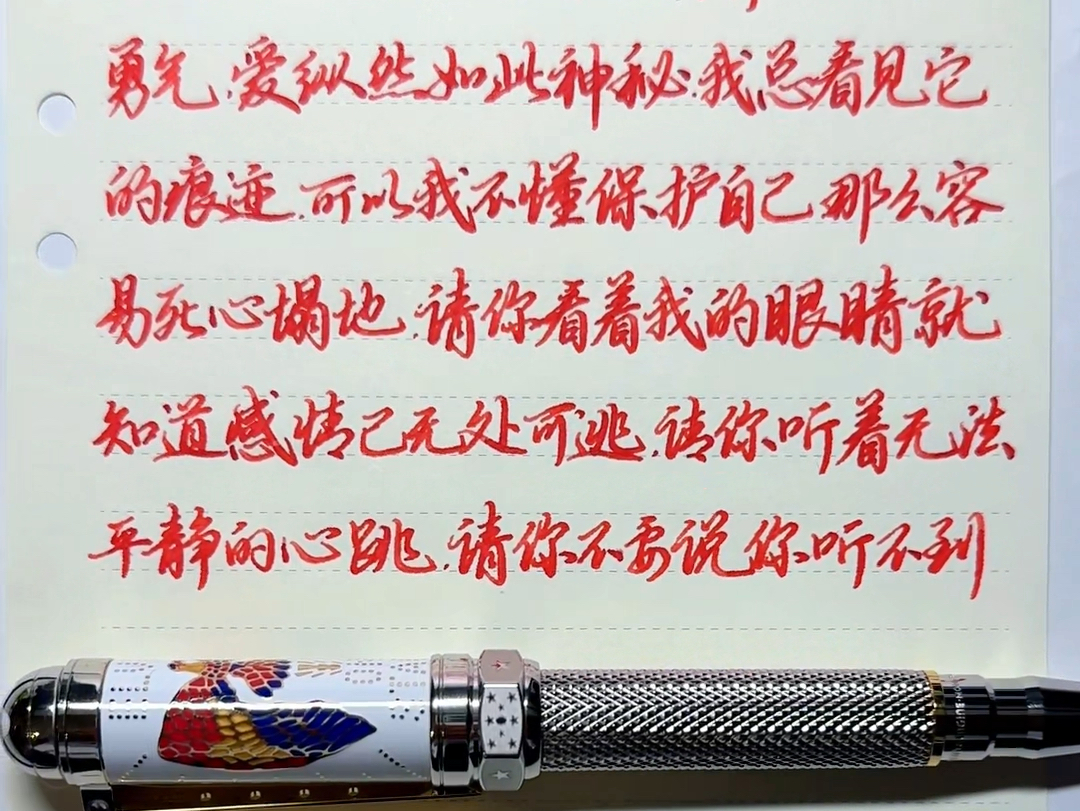 勇气,爱纵然如此神秘,我总看见它
的痕迹,可以我不懂保护自己那么容
易死心塌地,请你看着我的眼睛就
知道感情已无处可逃,请你听着无法
平静的心跳,请你不要说你听不到